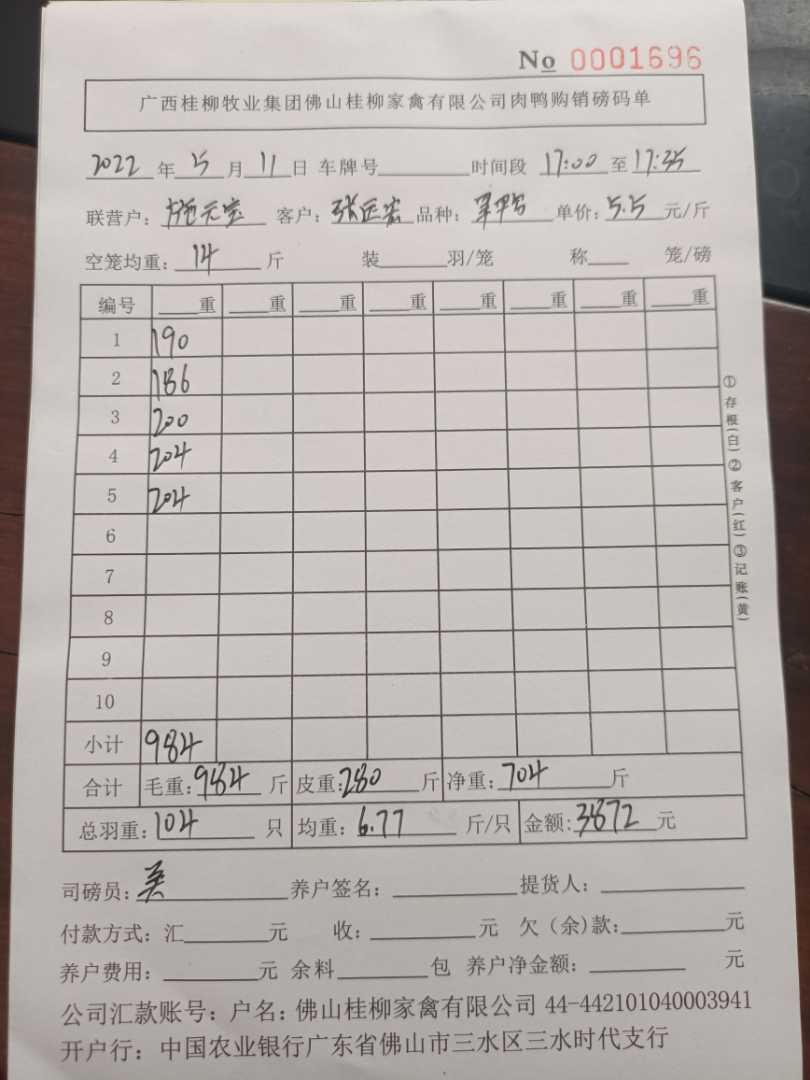 No 0001696
广西桂柳牧业集团佛山桂柳家禽有限公司肉鸭购销磅码单
2022 年 5 月 11 日 车牌号 时间段 17:00 至 17:35
联营户: 施元宝 客户: 张 品种: 单价: 5.5 元/斤
空笼均重: 14 斤 装 羽/笼 称 笼/磅
编号 重 重 重 重 重 重 重 重
1 190
2 186
3 200
4 204
5 204
6
7
8
9
10
小计 984
合计 毛重: 984 斤 皮重: 280 斤 净重: 704 斤
总羽重: 104 只 均重: 6.77 斤/只 金额: 3872 元
司磅员: 吴 养户签名: 提货人:
付款方式: 汇 元 收: 元 欠(余)款: 元
养户费用: 元 余料 包 养户净金额: 元
公司汇款账号: 户名: 佛山桂柳家禽有限公司 44-442101040003941
开户行: 中国农业银行广东省佛山市三水区三水时代支行
①存根(白)②客户(红)③记账(黄)